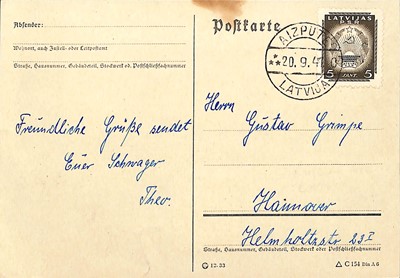 Absender:
Wohnort, auch Zustell- oder Leitpostamt
Straße, Hausnummer, Gebäudeteil, Stockwerk od. Postschließfachnummer
Freundliche Grüße sendet
Euer Schwager
Theo.
Postkarte
AIZPUTE
**20. 9. 4
LATVIJA
LATVIJAS
PSR
5 SANT. 5
Herrn
Gustav Grimpe
Hannover
Helmholtzstr 23 I
Straße, Hausnummer, Gebäudeteil, Stockwerk oder Postschließfachnummer
12. 33
C 154 Din A 6